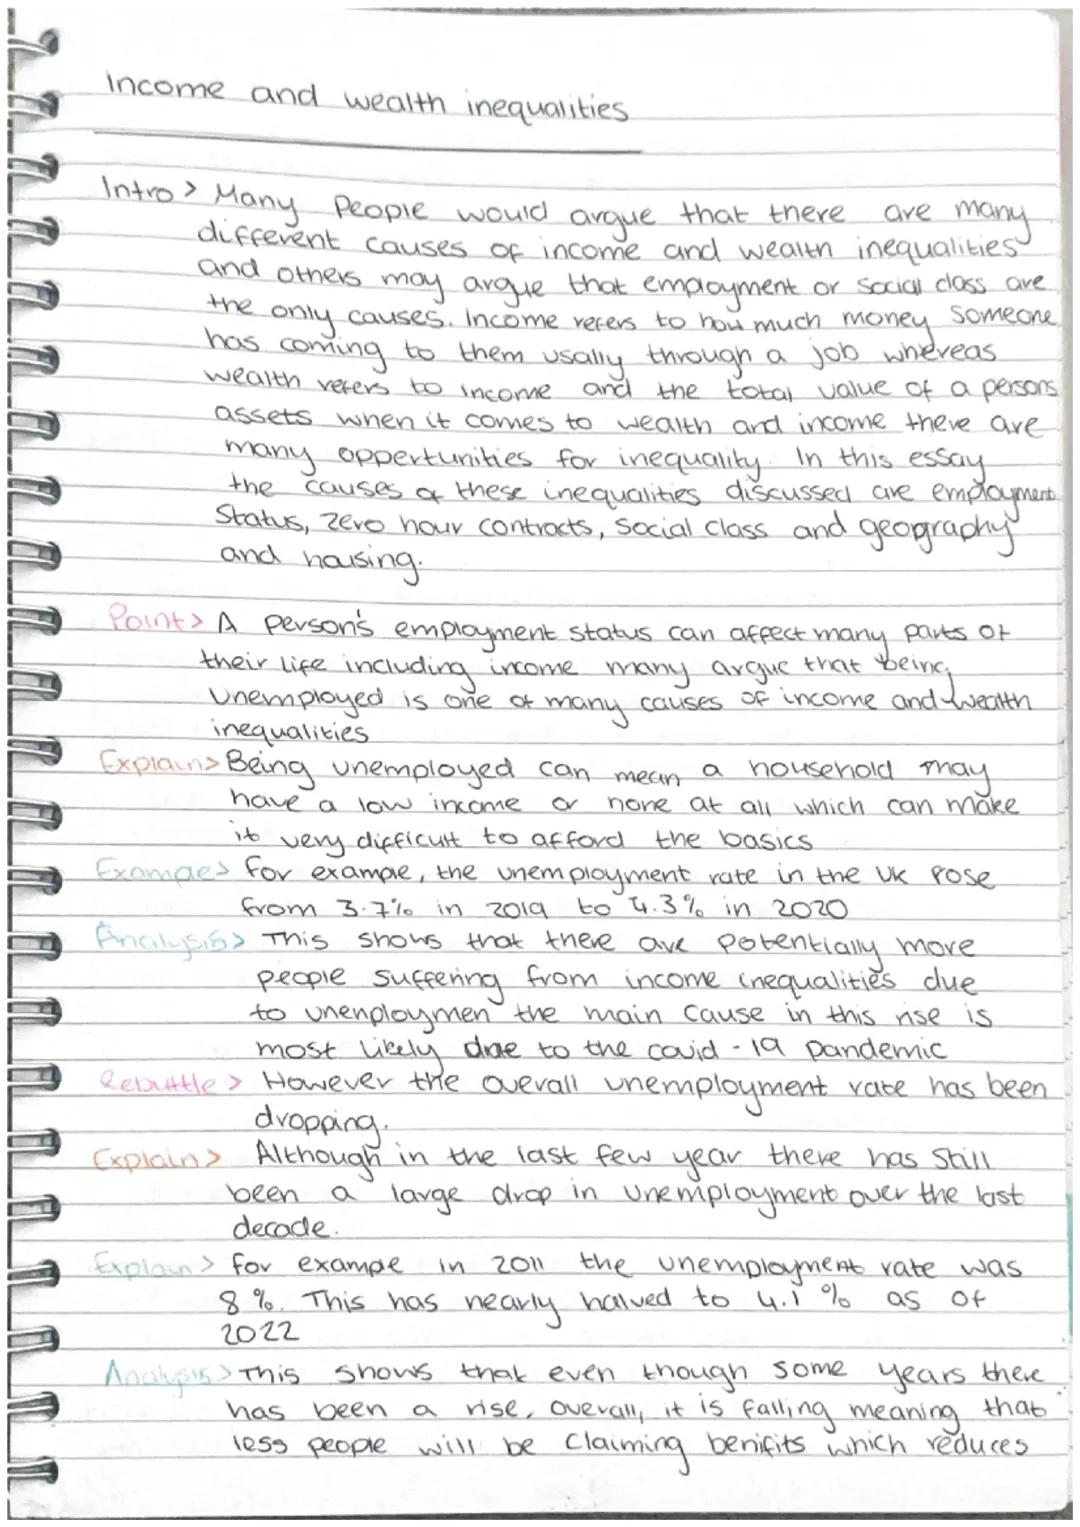 Income and wealth inequalities
Intro > Many People would argue that there are many
different causes of income and wealth inequalities
and others may argue that employment or social class are
the only causes. Income refers to how much money someone
has coming to them usally through a job whereas
wealth refers to income and the total value of a persons
assets when it comes to wealth and income there are
many oppertunities for inequality. In this essay
the causes of these inequalities discussed are employment
Status, Zero hour contracts, Social Class and geography
and housing.
Point > A person's employment status can affect many parts of
their life including income many argue that being
Unemployed is one of many causes of income and wealth
inequalities
Explain > Being unemployed can mean a household may
have a low income or none at all which can make
it very difficult to afford the basics
Example > for example, the unemployment rate in the UK rose
from 3.7% in 2019 to 4.3% in 2020
Analysis > This shows that there are potentially more
people suffering from income inequalities due
to unenploymen the main cause in this rise is
most likely due to the covid-19 pandemic
Rebuttle > However the overall unemployment rate has been
dropping.
Explain > Although in the last few year there has Still
been a large drop in unemployment over the last
decade.
Explain > for example in 2011 the unemployment rate was
8%. This has nearly halved to 4.1% as of
2022
Analysis > This shows that even though some years there
has been a rise, overall, it is falling meaning that
less people will be claiming benifits which reduces